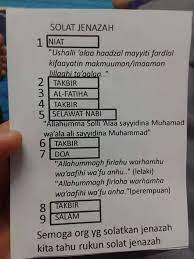 SOLAT JENAZAH
1 NIAT
"Ushalli 'alaa haadzal mayyiti fardlal
kifaayatin makmuuman/imaaman
lillaahi ta'aalaa.."
2 TAKBIR
3 AL-FATIHA
4 TAKBIR
5 SELAWAT NABI
"Allahumma Solli 'Alaa sayyidina Muhammad
wa'ala ali sayyidina Muhammad"
6 TAKBIR
7 DOA
"Allahummagh firlahu warhamhu
wa'aafihi wa'fu anhu.." (lelaki)
"Allahummagh firlaha warhamha
wa'aafiha wa'fu anha.."(perempuan)
8 TAKBIR
9 SALAM
Semoga org yg solatkan jenazah
kita tahu rukun solat jenazah